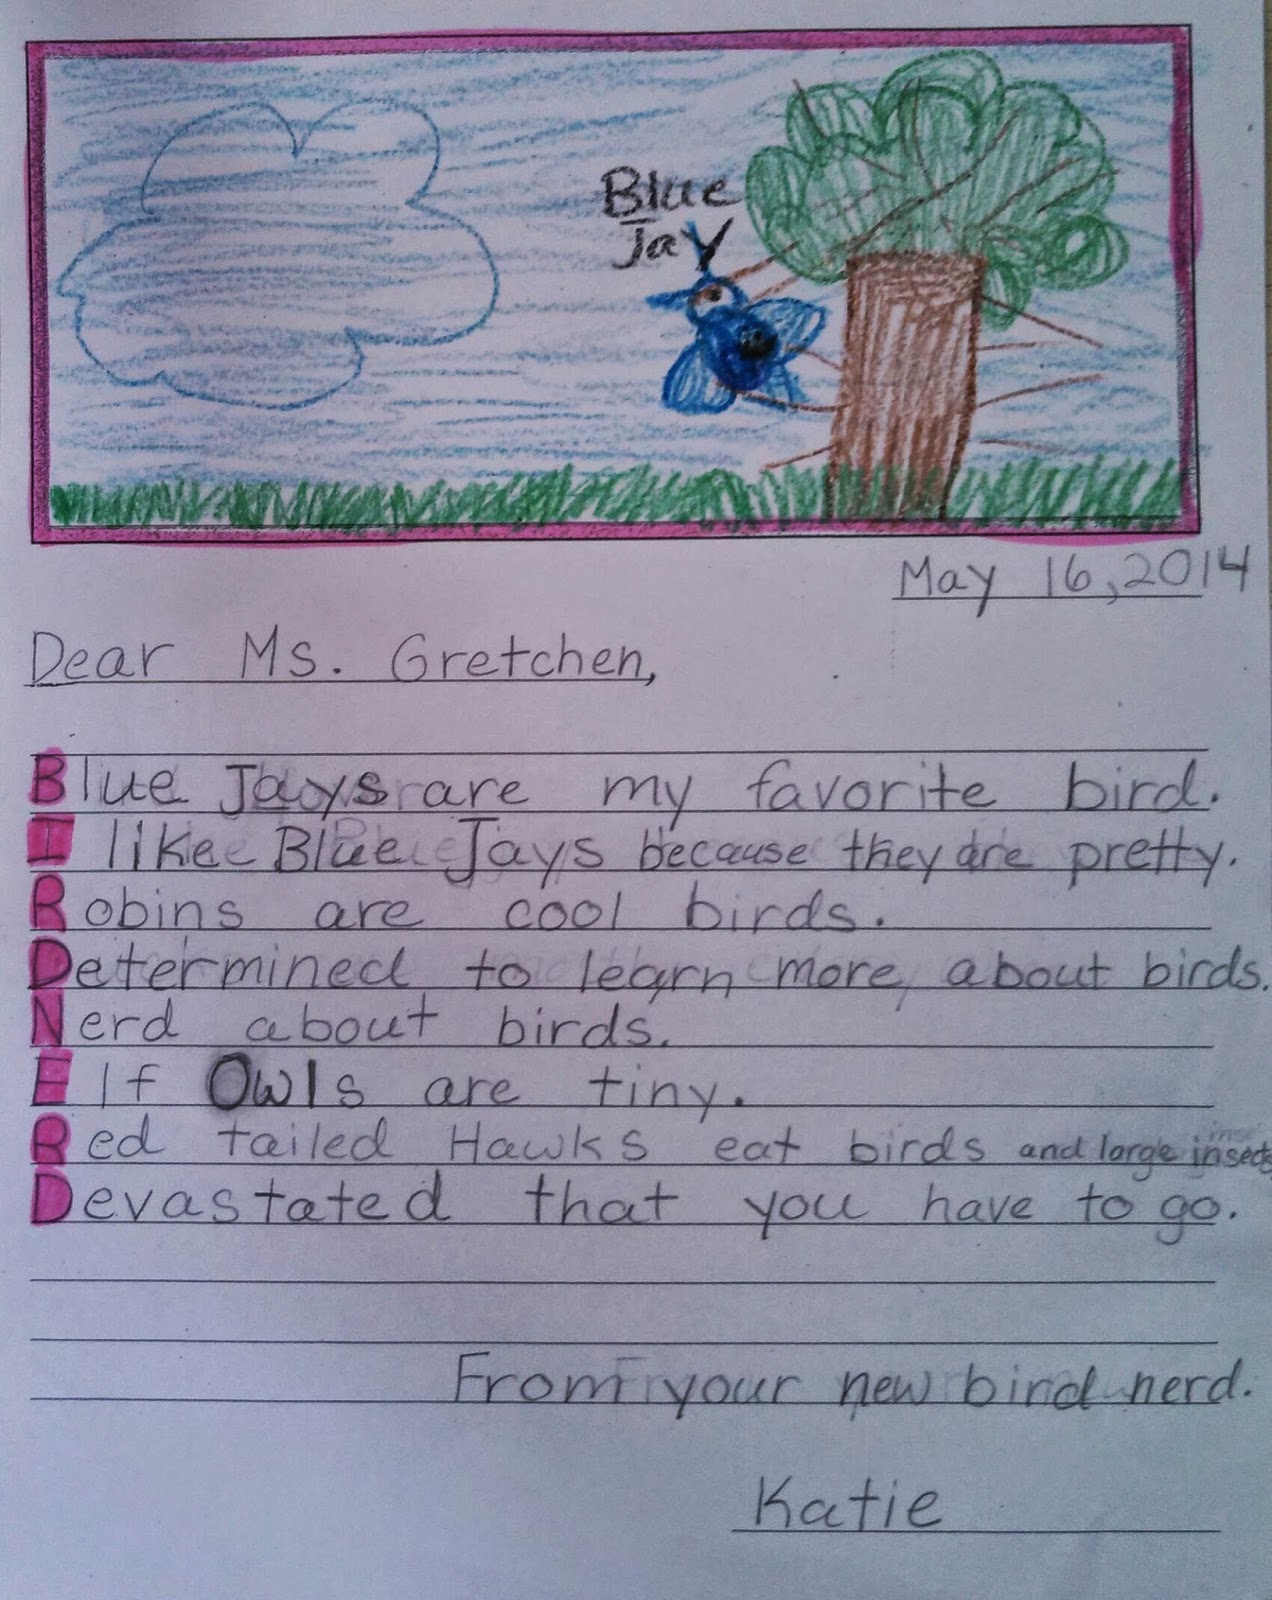 Blue
Jay
May 16, 2014
Dear Ms. Gretchen,
Blue Jays are my favorite bird.
I like Blue Jays because they are pretty.
Robins are cool birds.
Determined to learn more about birds.
Nerd about birds.
Elf Owls are tiny.
Red tailed Hawks eat birds and large insects
Devastated that you have to go.
From your new bird nerd.
Katie